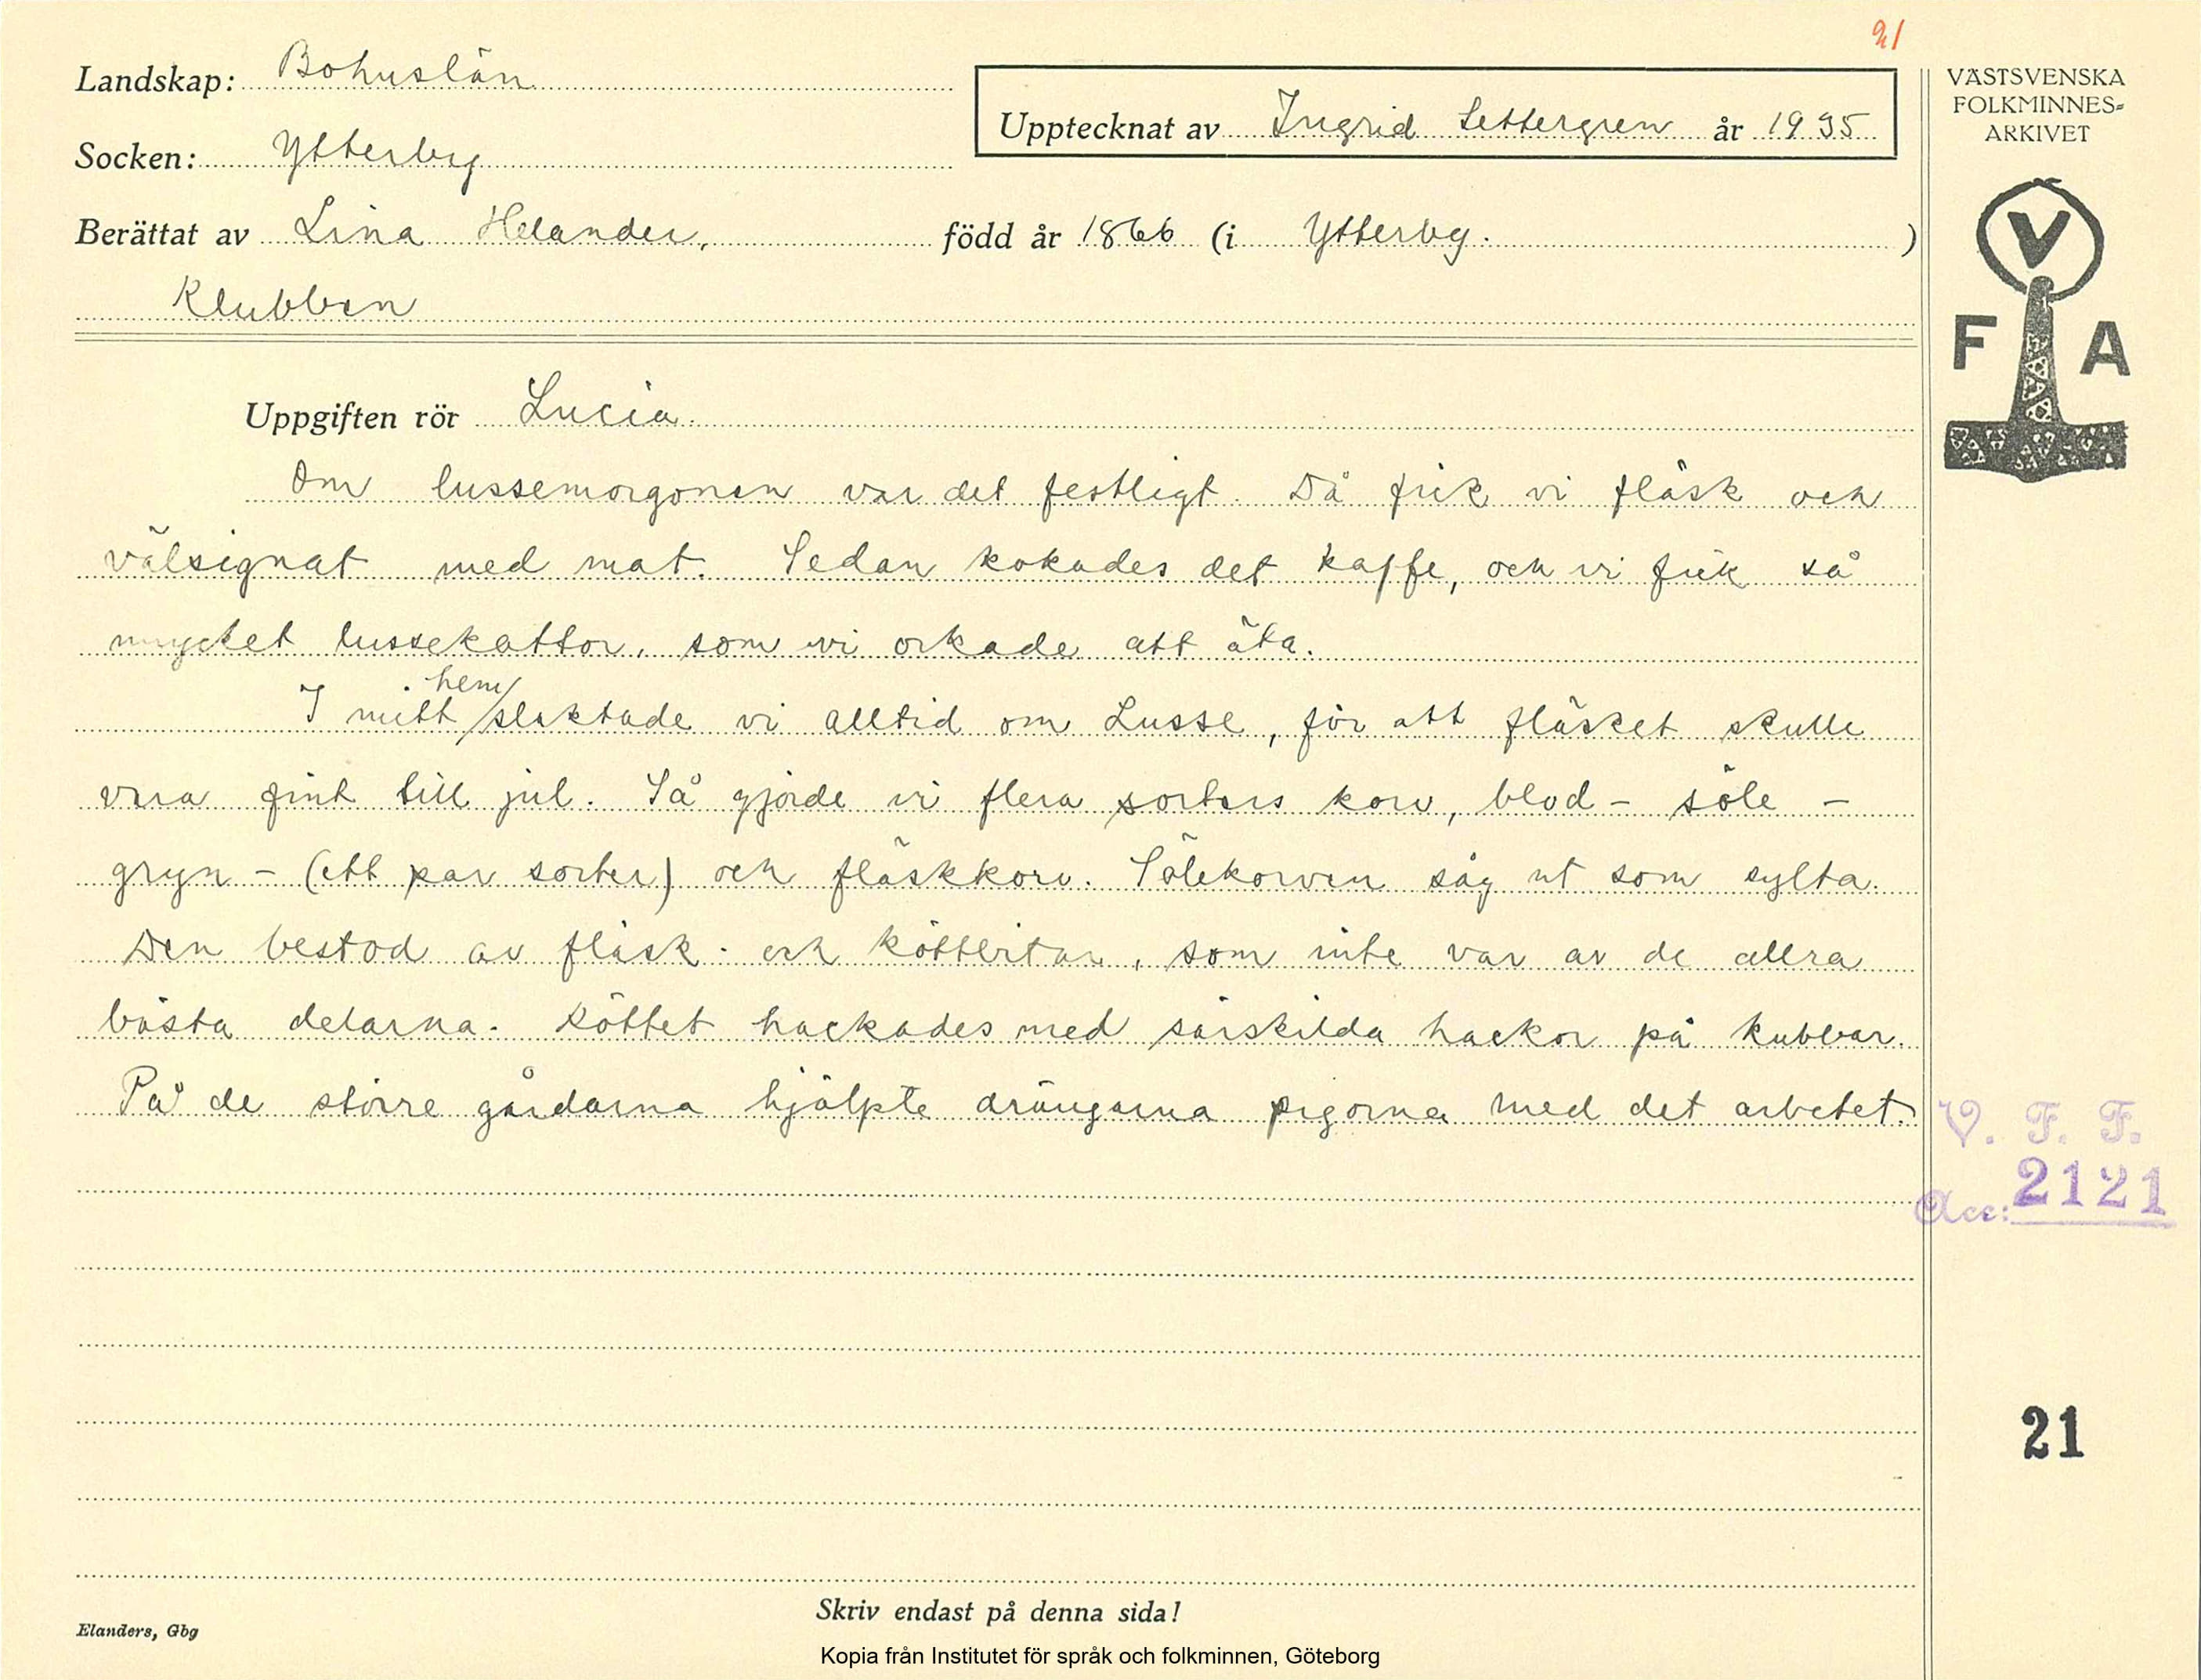 21
Landskap: Bohuslän
Upptecknat av Ingrid Settergren år 1935
Socken: Ytterby
Berättat av Lina Helander, född år 1866 (i Ytterby. )
Klubben
VÄSTSVENSKA
FOLKMINNES-
ARKIVET
V
F A
Uppgiften rör Lucia.
Om lussemorgonen var det festligt. Då fick vi fläsk och
välsignat med mat. Sedan kokades det kaffe, och vi fick så
mycket lussekattor, som vi orkade att äta.
hem
I mitt / slaktade vi alltid om Lusse, för att fläsket skulle
vara fint till jul. Så gjorde vi flera sorters korv, blod- söle -
gryn - (ett par sorter) och fläskkorv. Sölekorven såg ut som sylta.
Den bestod av fläsk- och köttbitar, som inte var av de allra
bästa delarna. Köttet hackades med särskilda hackor på kubbar.
På de större gårdarna hjälpte drängarna pigorna med det arbetet.
V. F. F.
Acc: 2121
21
Skriv endast på denna sida!
Elanders, Gbg
Kopia från Institutet för språk och folkminnen, Göteborg